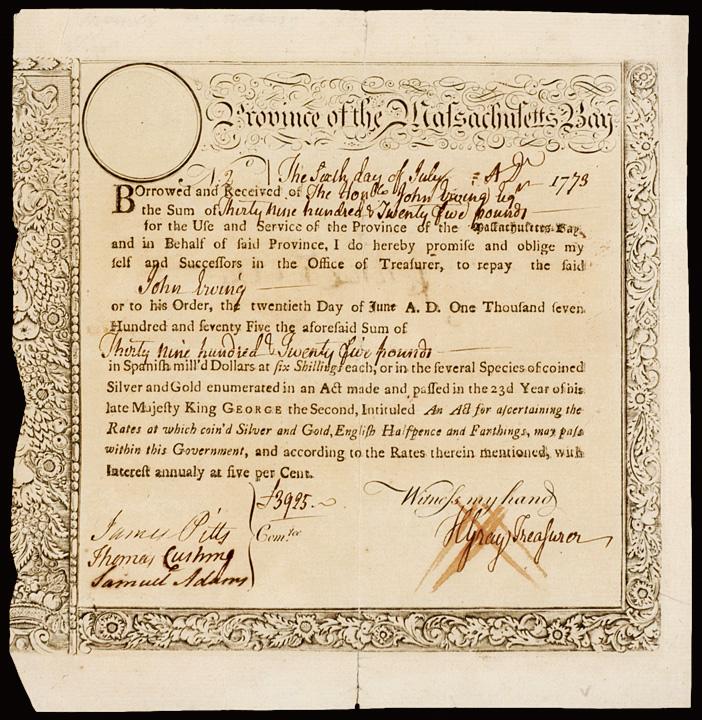 Province of the Massachusetts Bay
N. 2 The Sixth day of July A D 1773
BOrrowed and Received of The Honble John Erving Esqr
the Sum of Thirty nine hundred & Twenty five pounds
for the Use and Service of the Province of the Massachusetts-Bay,
and in Behalf of said Province, I do hereby promise and oblige my
self and Successors in the Office of Treasurer, to repay the said
John Erving
or to his Order, the twentieth Day of June A. D. One Thousand seven
Hundred and seventy Five the aforesaid Sum of
Thirty nine hundred & Twenty five pounds
in Spanish mill'd Dollars at six Shillings each, or in the several Species of coined
Silver and Gold enumerated in an Act made and passed in the 23d Year of his
late Majesty King GEORGE the Second, Intituled An Act for ascertaining the
Rates at which coin'd Silver and Gold, English Halfpence and Farthings, may pass
within this Government, and according to the Rates therein mentioned, with
Interest annualy at five per Cent.
£3925.
Witness my hand
James Pitts
Thomas Cushing
Samuel Adams
Comtee
HGray Treasurer